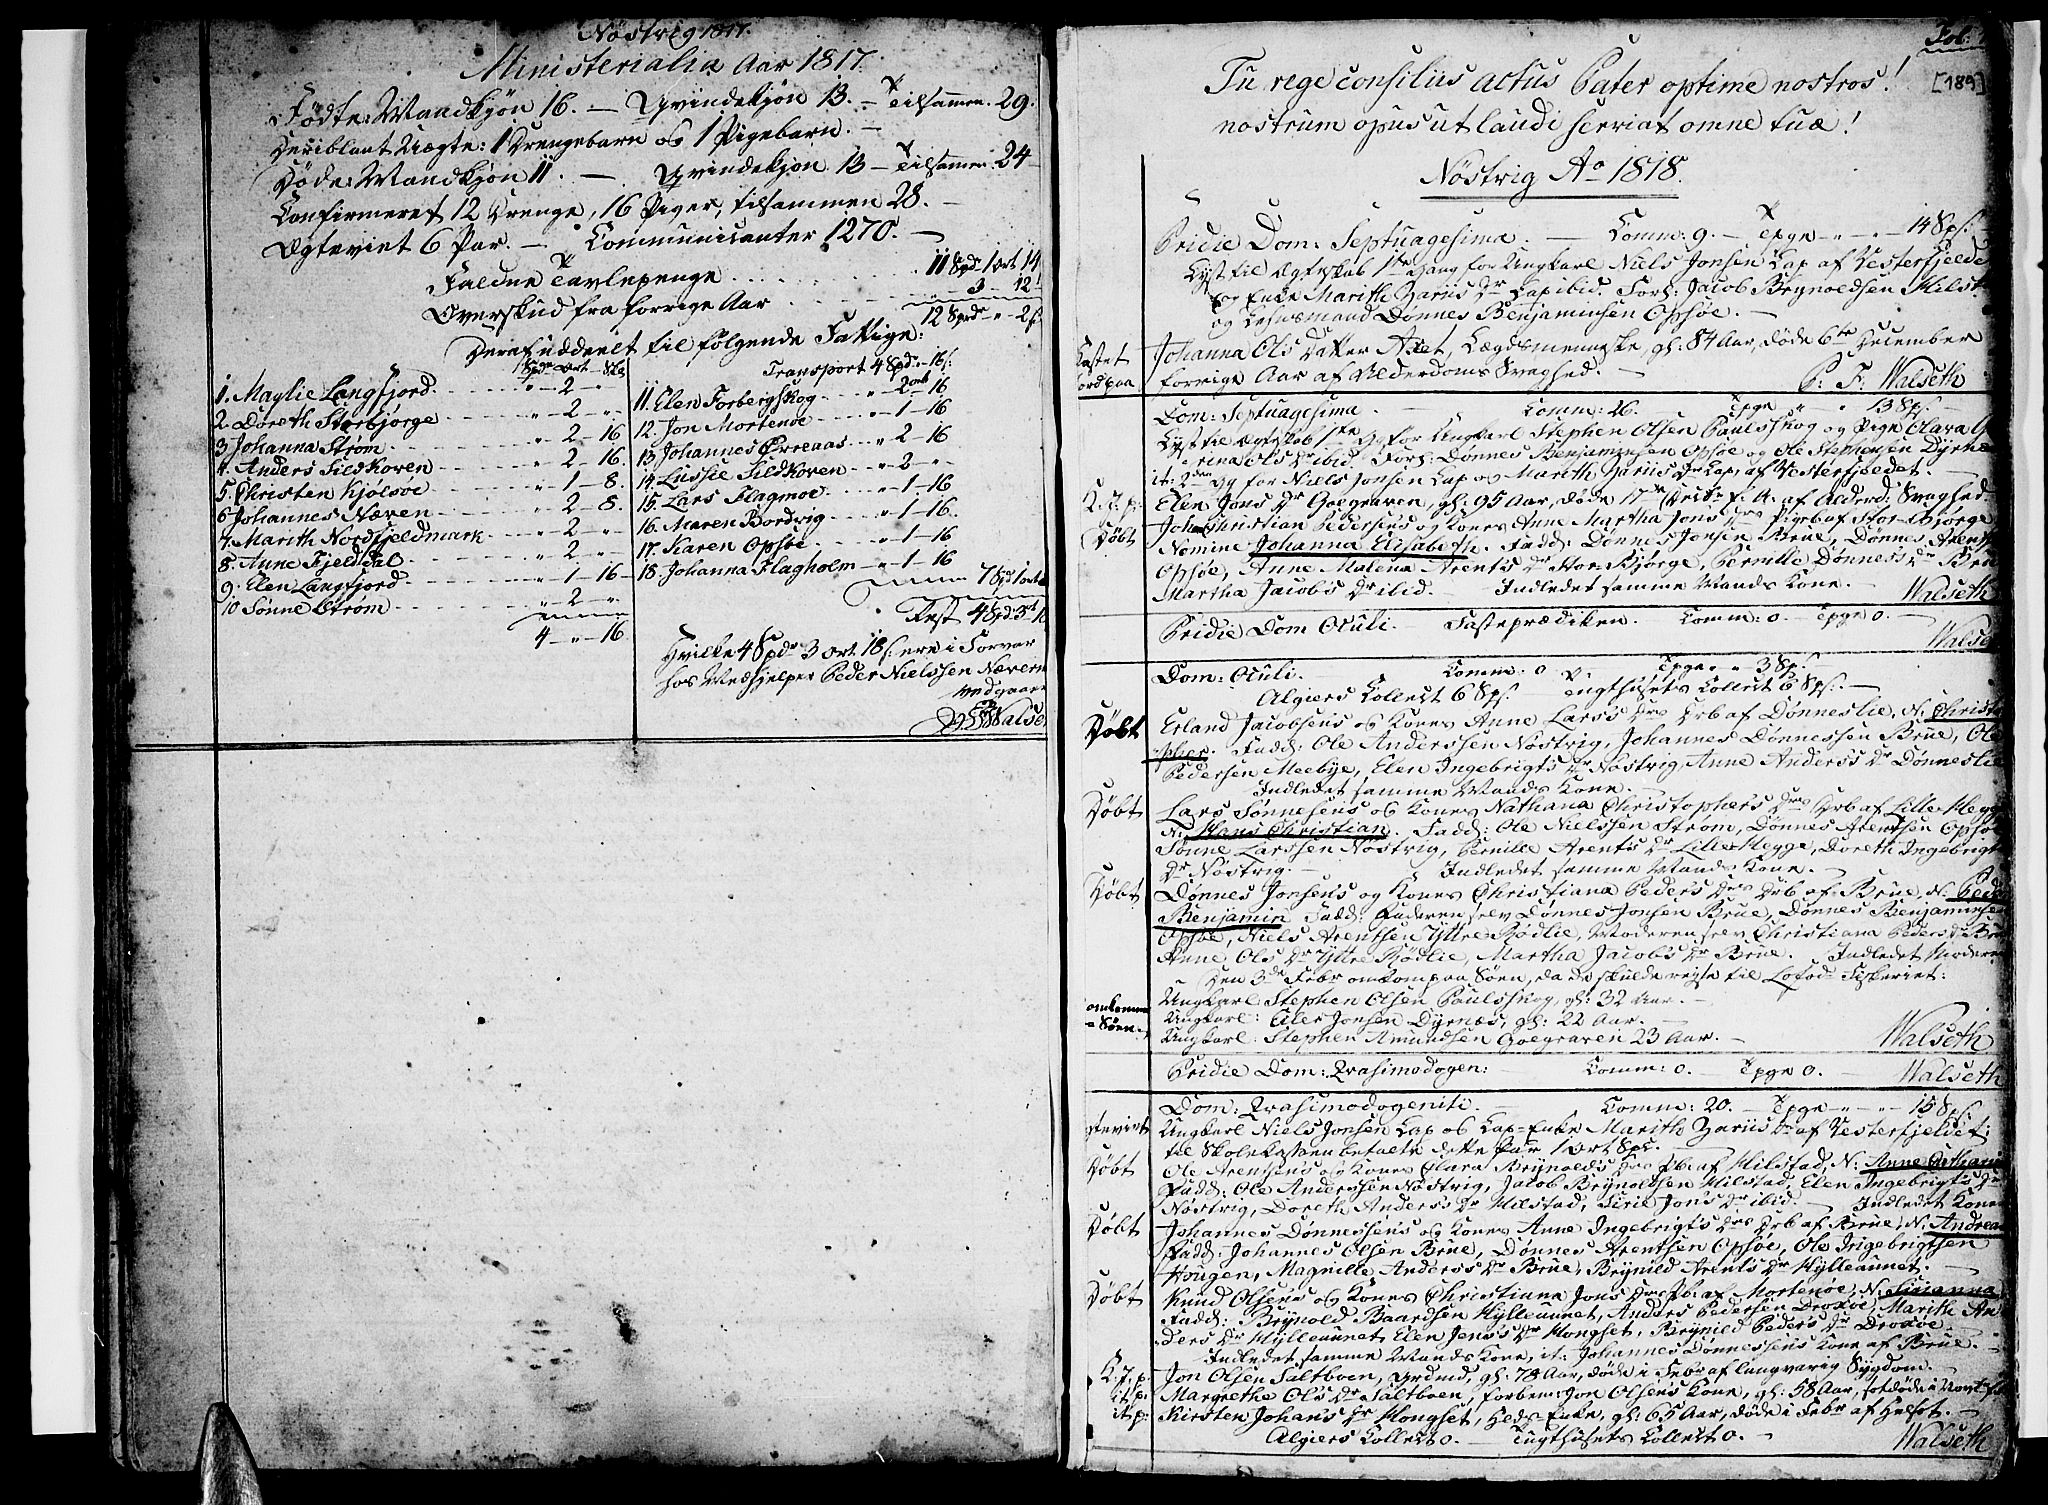 Nöstrig 1817.
Ministerialia Aar 1817.
Födte: Mandkjön 16. — Qvindekjön 13. — Tilsammen. 29.
Heriblant Uægte: 1 Drengebarn og 1 Pigebarn. —
Döde: Mandkjön 11. — Qvindekjön 13 — Tilsammen. 24
Confirmeret 12 Drenge, 16 Piger, tilsammen 28. —
Ægteviet 6 Par. — Communicanter 1270. —
Faldne Tavlepenge . . . 11 Spdr 1 ort 14
Overskud fra forrige Aar . . . " 3 - 12
12 Spdr - " - 2 s
Deraf uddeelt til fölgende Fattige:
Spdr Ort Sk
1. Maylie Langfjord . . . " - 2 - "
2. Doreth Storbjörge . . . " - 2 - "
3 Johanna Ström . . . " - 2 - 16
4. Anders Sildhoven . . . " - 2 - 16.
5. Christen Kjölsöe . . . " - 1 - 8.
6 Johannes Næven . . . " - 2 - 8.
7. Marith Nordfjeldmark . . . " - 2 - "
8. Anne Fjelddal . . . " - 2 - "
9. Elen Langfjord . . . " - 1 - 16
10 Sönne Ström . . . " - 2 - "
4 - " - 16
Transport 4 Spd - " - 16 s.
11. Elen Forbergskog . . . " - 2 ort 16
12. Jon Mortenöe . . . " - 1 - 16
13. Johannes Ørrenaas . . . " - 2 - 16
14. Lussie Sildhoven . . . " - 2 - "
15. Lars Flagmoe . . . " - 1 - 16
16. Maren Bordvig . . . " - 1 - 16.
17. Karen Opsöe . . . " - 1 - 16
18. Johanna Flagholm . . . " - 1 - 16
7 Spd 1 ort
Rest 4 Spd 3 ort 18
Hvilke 4 Spdr 3 ort 18 s: ere i Forvar
hos Medhjelper Peder Nielssen Næverm
Walse
Fol.
[189]
Tu rege consiliis actus Pater optime nostros!
nostrum opus ut laudi serviat omne tuæ!
Nöstrig Ao 1818.
Pridie Dom: Septuagesima — Comm: 9. — Tpge " - " - 14 Sps.
Lyst til Ægteskab 1te Gang for Ungkarl Niels Jonsen Lap af Vesterfjelde
og Enke Marith Zariis Dr Lap ibid. Forl: Jacob Brynoldsen Milst
og Lehnsmand Dönnes Benjaminsen Opsöe. —
Kastet Johanna Ols Datter Axet, Lægdsmenneske, gl: 84 Aar, döde 6te December
Jord paa forrige Aar af Alderdoms Svaghed. — P. F: Walseth
Dom: Septuagesima — Comm: 26. Tpge " - " 13 Sps. —
Lyst til Ægtskab 1te Gg for Ungkarl Stephen Olsen Paulsskog og Pige Clara
rina Ols Dr ibid. Forl: Dönnes Benjaminsen Opsöe og Ole Stephensen Dyrnæ
it: 2den Gg for Niels Jonsen Lap og Marith Zariis Dr Lap af Vesterfjeldet. —
K. J. p: Elen Jons Dr Goegraven, gl: 95 Aar, döde 17de Decbr f. A. af Alderd: Svaghed
Döbt Joh: Christian Pedersens og Kones Anne Martha Jons Drs Pigeb af Stor-Björge
Nomine Johanna Elisabeth. Fadd: Dönnes Jonsen Brue, Dönnes Arents
Opsöe, Anne Malena Arents Dr Stor-Björge, Pernille Dönness Dr Brue
Martha Jacobs Dr ibid. — Indledet samme Mands Kone. — Walseth
Pridie Dom Oculi. — Fasteprædiken. Comm: 0. — Tpge 0. —
Walse
Dom: Oculi. — Comm: 0 Tpge " - " 3 Sps. —
Algiers Collect 6 Sps. Tugthusets Collect 6 Sps. —
Döbt Erland Jacobsens og Kones Anne Lars's Drs Drb af Dönneslie, N: Christo
pher. Fadd: Ole Anderssen Nöstrig, Johannes Dönnessen Brue, Ole
Pedersen Meebye, Elen Ingebrigts Dr Nöstrig, Anne Anderss Dr Dönneslie
Indledet samme Mands Kone. —
Döbt Lars Sönnesens og Kones Nathana Christophers Drs Drb af Lille-Hegge
N: Hans Christian. Fadd: Ole Nielssen Ström, Dönnes Arentsen Opsöe
Sönne Larssen Nöstrig, Pernille Arents Dr Lille-Hegge, Doreth Ingebrigt
Dr Nöstrig. — Indledet samme Mands Kone. —
Döbt Dönnes Jonsen's og Kones Christiana Peders Drs Drb af Brue, N: Peder
Benjamin Fadd: Faderen selv Dönnes Jonsen Brue, Dönnes Benjaminsen
Opsöe, Niels Arentsen Yttre Rödlie, Moderen selv Christiana Peders Dr Brue
Anne Ols Dr Yttre Rödlie, Martha Jacobs Dr Brue. Indledet Moderen
" Den 3de Febr omkom paa Söen, da de skulde reyse til Lofod-Fiskeriet:
omkomne Ungkarl Stephen Olsen Paulsskog, gl: 32 Aar. —
Söen. Ungkarl: Eiler Jonsen Dyrnæs, gl: 22 Aar. —
Ungkarl: Stephen Amundsen Goegraven 23 Aar. — Walseth
Pridie Dom: Qvasimodogen: Comm: 0. Tpge 0. — Walseth
Dom: Qvasimodogeniti. — Comm: 20. — Tpge " - " - 15 Sps.
gteviet Ungkarl Niels Jonsen Lap og Lap-Enke Marith Zariis Dr af Vesterfjeldet;
til Skolekassen betalte dette Par 1 Ort Spc. —
Döbt Ole Arentsens og Kones Clara Brynolds Drs Pb: af Milstad, N: Anne Cathari
Fadd: Ole Anderssen Nöstrig, Jacob Brynoldsen Milstad, Elen Ingebrigts Dr
Nöstrig, Doreth Anders's Dr Milstad, Sirie Jons Dr ibid. — Indledet Konen
Döbt Johannes Dönnessens og Kones Anne Ingebrigts Drs Drb af Brue, N: Andreas
Fadd: Johannes Olsen Brue, Dönnes Arentsen Opsöe, Ole Ingebrigtsen
Hougen, Magnille Anderss Dr Brue, Brynild Arents Dr Hylleaunet. —
Döbt Knud Olsens og Kones Christianna Jons Drs Pb: af Mortenöe, N:
Fadd: Brynold Baardsen Hylleaunet, Anders Pedersen Droxöe, Marith An
ders Dr Hylleaunet, Elen Jens's Dr Hongset, Brynild Peders Dr Droxöe.
Indledet samme Mands Kone, it: Johannes Dönnessens Kone af Brue. —
K. J. p. Jon Olsen Saltboen, Grdmd, gl: 78 Aar, döde i Febr af langvarig Sygdom. —
it p: Margrethe Ols Dr Saltboen, forben: Jon Olsens Kone, gl: 58 Aar, sotdöde i
it p: Kirsten Johan's Dr Hongset, Leds-Enke, gl: 65 Aar, döde i Febr af
Algiers Collect 0. — Tugthusets Collect 0. — Walseth